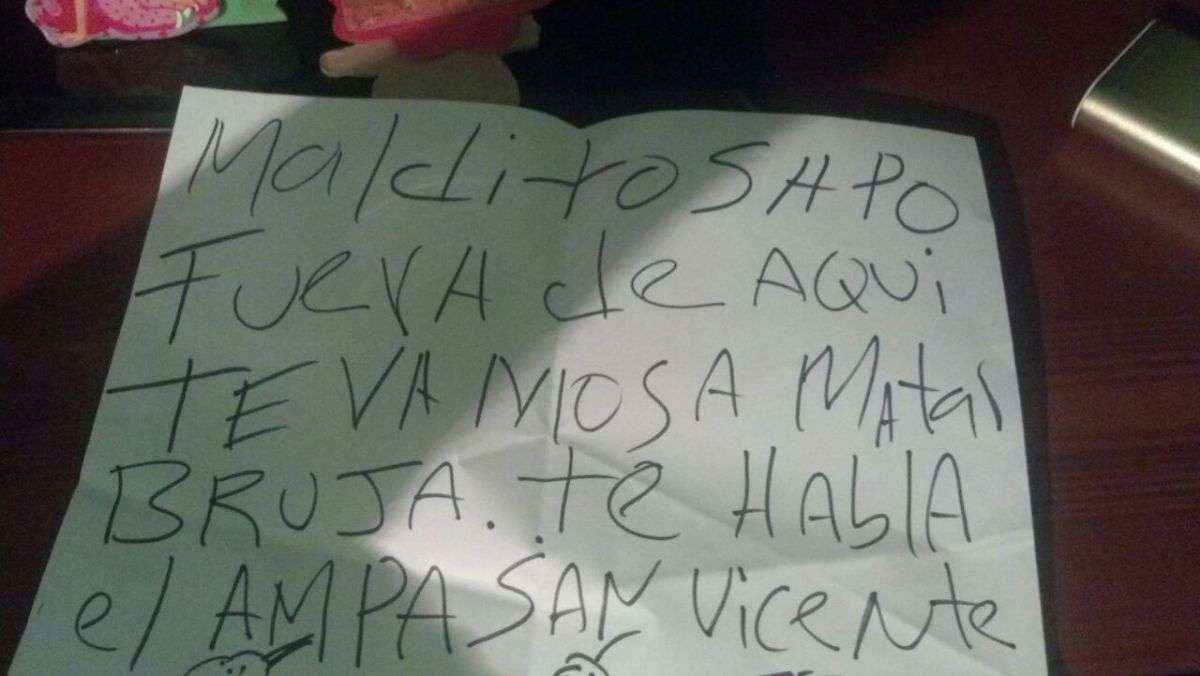 Maldito SAPO
FuerA de AQUi
TE VAMOS A MAtar
BRUJA. te HAblA
el AMPA SAN ViceNte